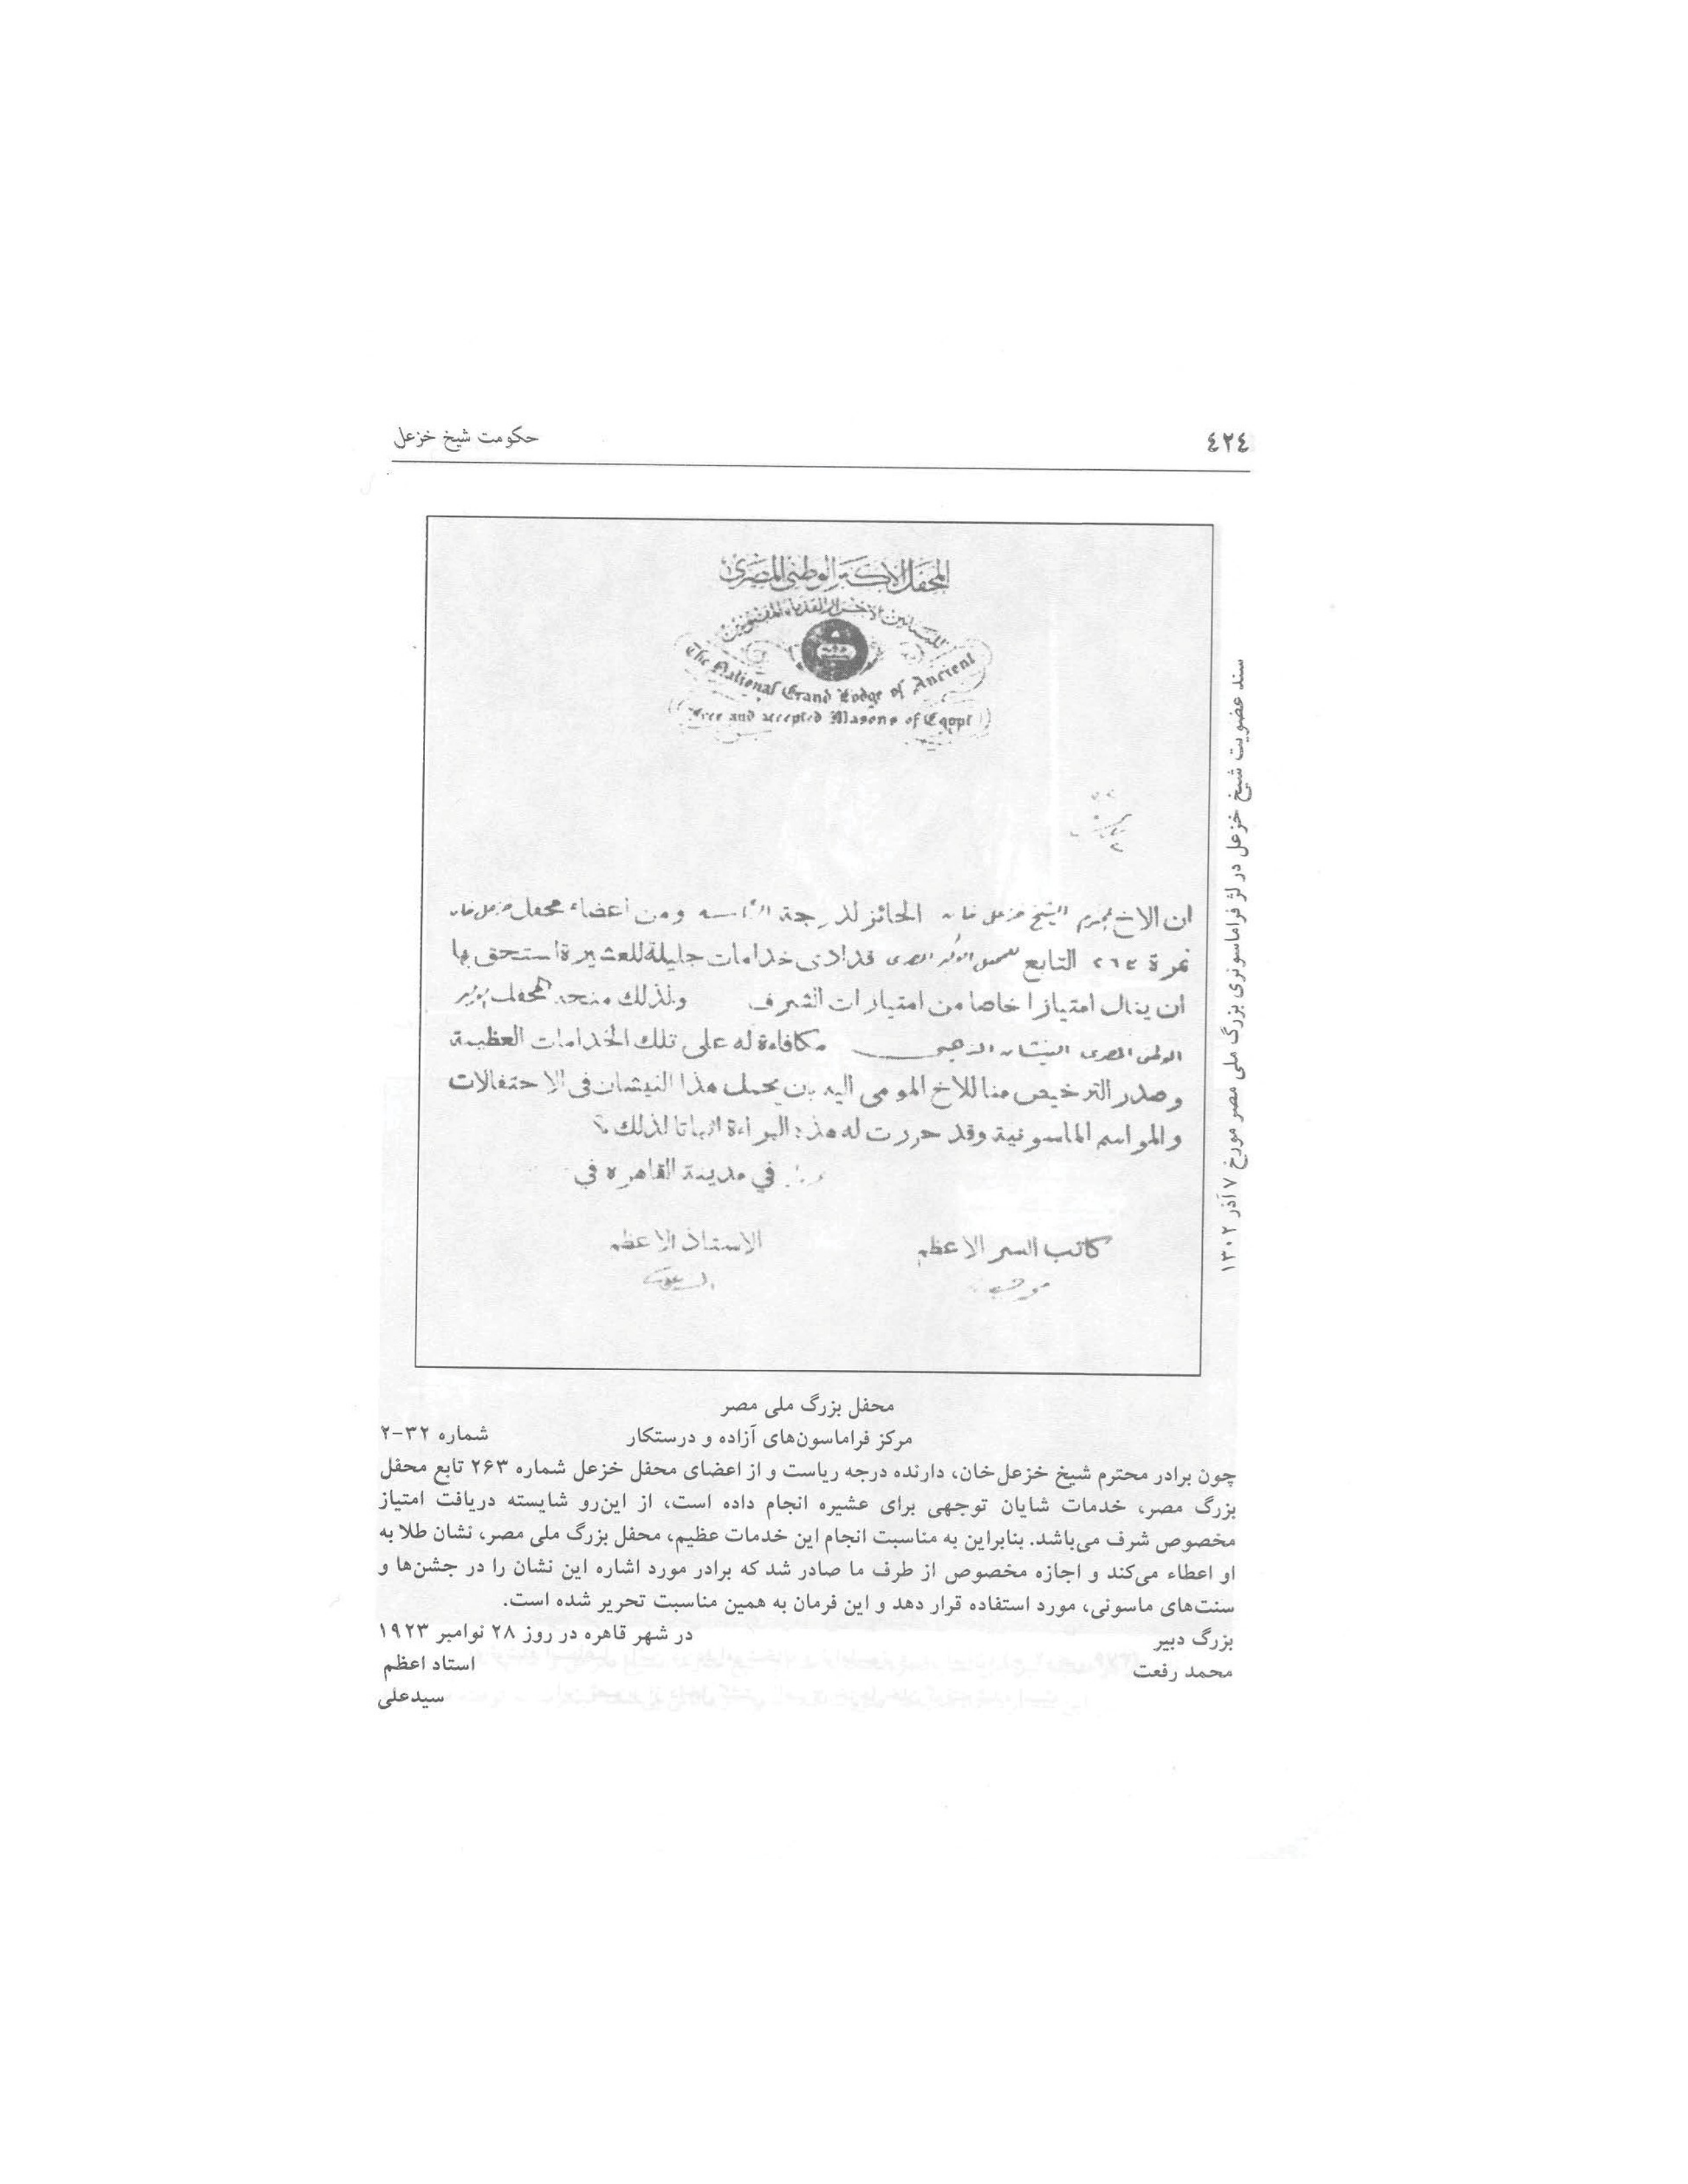 ٤٢٤
حکومت شیخ خزعل
المحفل الاكبر الوطنى المصرى
للبنائين الاحرار القدماء المقبولين
The National Grand Lodge of Ancient
Free and accepted Masons of Egypt
ان الاخ المحترم الشيخ خزعل خان الحائز لدرجة الرئاسه ومن اعضاء محفل خزعل خان
نمرة ٢٦٣ التابع للمحفل الاكبر المصرى قد ادى خدامات جليلة للعشيرة استحق بها
ان ينال امتيازا خاصا من امتيازات الشرف ولذلك منحه المحفل الاكبر
الوطنى المصرى النيشان الذهبى مكافاءة له على تلك الخدامات العظيمة
وصدر الترخيص منا للاخ المومى اليه بان يحمل هذا النيشان فى الاحتفالات
والمواسم الماسونية وقد حررت له هذه البراءة اثباتا لذلك
في مدينة القاهره في
كاتب السر الاعظم
الاستاذ الاعظم
سند عضویت شیخ خزعل در لژ فراماسونری بزرگ ملی مصر مورخ ۷ آذر ۱۳۰۲
محفل بزرگ ملی مصر
مرکز فراماسون‌های آزاده و درستکار شماره ۳۲-۲
چون برادر محترم شیخ خزعل‌خان، دارنده درجه ریاست و از اعضای محفل خزعل شماره ۲۶۳ تابع محفل
بزرگ مصر، خدمات شایان توجهی برای عشیره انجام داده است، از این‌رو شایسته دریافت امتیاز
مخصوص شرف می‌باشد. بنابراین به مناسبت انجام این خدمات عظیم، محفل بزرگ ملی مصر، نشان طلا به
او اعطاء می‌کند و اجازه مخصوص از طرف ما صادر شد که برادر مورد اشاره این نشان را در جشن‌ها و
سنت‌های ماسونی، مورد استفاده قرار دهد و این فرمان به همین مناسبت تحریر شده است.
بزرگ دبیر در شهر قاهره در روز ۲۸ نوامبر ۱۹۲۳
محمد رفعت استاد اعظم
سیدعلی